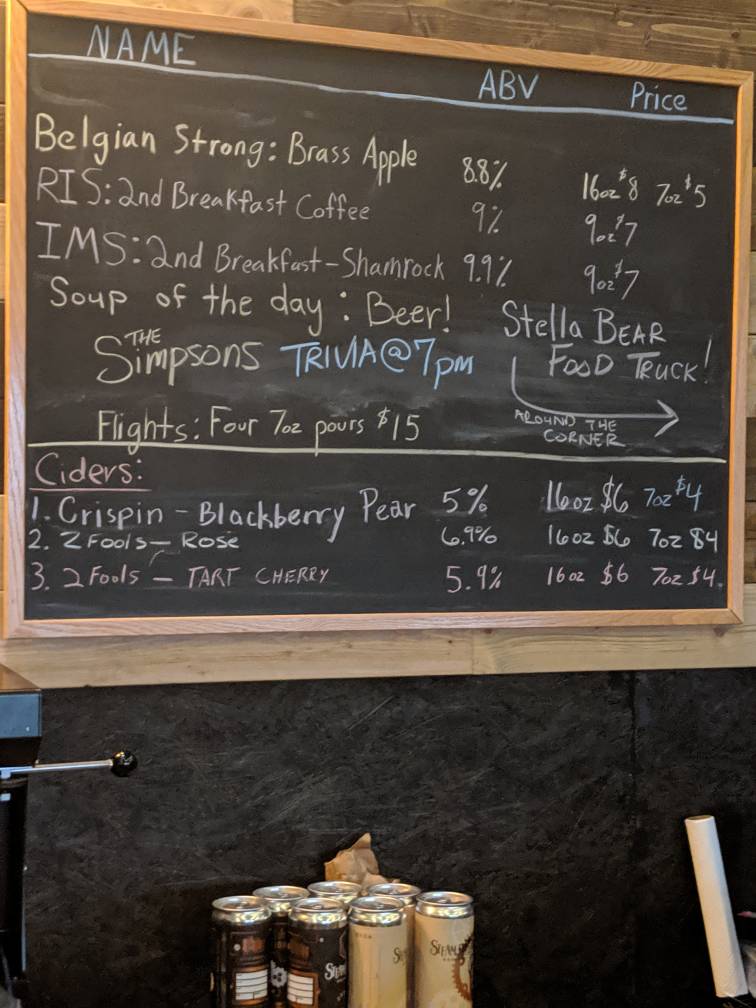 NAME ABV Price
Belgian Strong: Brass Apple 8.8% 16oz $8 7oz $5
RIS: 2nd Breakfast Coffee 9% 9oz $7
IMS: 2nd Breakfast - Shamrock 9.9% 9oz $7
Soup of the day: Beer!
THE
Simpsons TRIVIA @ 7pm
Stella BEAR
FOOD TRUCK!
AROUND THE
CORNER
Flights: Four 7oz pours $15
Ciders:
1. Crispin - Blackberry Pear 5% 16oz $6 7oz $4
2. 2 FOOLS - ROSE 6.9% 16oz $6 7oz $4
3. 2 FOOLS - TART CHERRY 5.9% 16oz $6 7oz $4